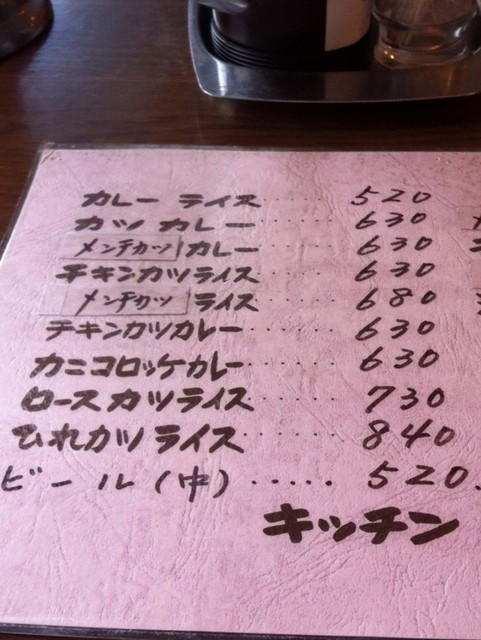 カレーライス······520
カツカレー······630
メンチカツカレー······630
チキンカツライス······630
メンチカツライス······680
チキンカツカレー······630
カニコロッケカレー······630
ロースカツライス······730
ひれカツライス······840
ビール(中)·····520.
キッチン